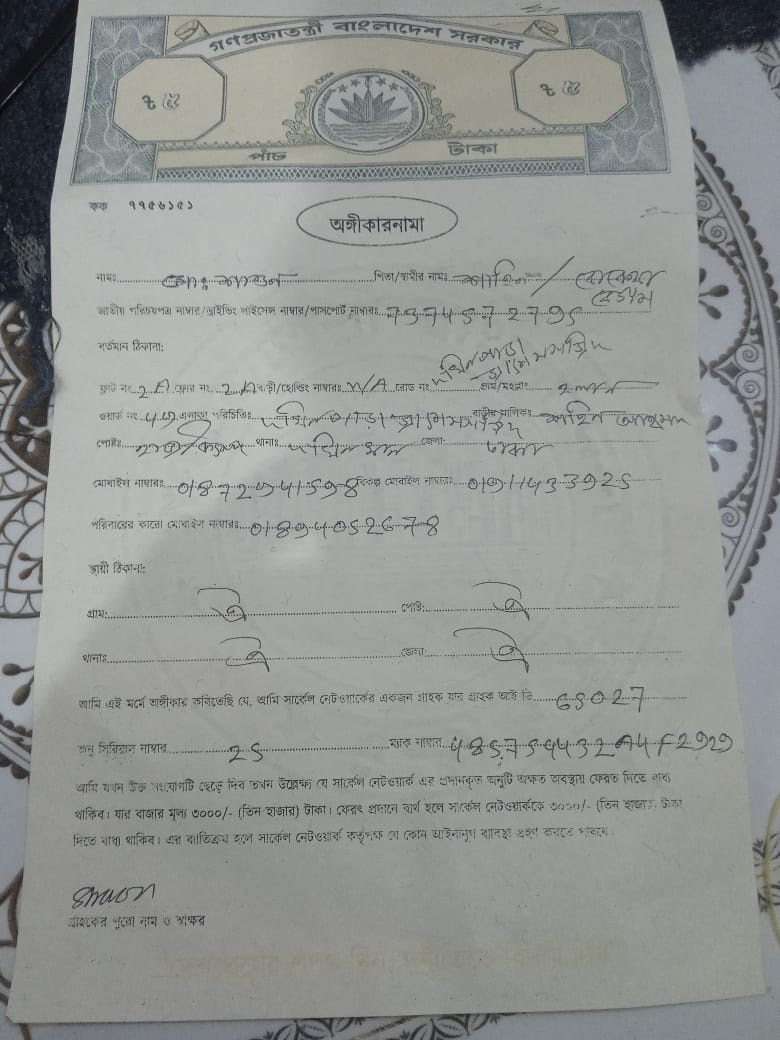 গণপ্রজাতন্ত্রী বাংলাদেশ সরকার
৳ ৫ ৳ ৫
পাঁচ টাকা
কক ৭৭৫৬১৫১
অঙ্গীকারনামা
নামঃ পিতা/স্বামীর নামঃ শাহিন /
বেগম
জাতীয় পরিচয়পত্র নাম্বার/ড্রাইভিং লাইসেন্স নাম্বার/পাসপোর্ট নাম্বারঃ 7374572795
বর্তমান ঠিকানা:
ফ্ল্যাট নং 2A ফ্লোর নং 2A বাড়ী/হোল্ডিং নাম্বারঃ N/A রোড নং গ্রাম/মহল্লাঃ
ওয়ার্ড নং এলাকা পরিচিতিঃ বাড়ীর মালিকঃ শাহিন আহমদ
পোষ্টঃ থানাঃ জেলা: ঢাকা
মোবাইল নাম্বারঃ 01872941598 বিকল্প মোবাইল নাম্বারঃ 01911433925
পরিবারের কারো মোবাইল নাম্বারঃ 01894052678
স্থায়ী ঠিকানা:
গ্রাম: ঐ পোষ্ট: ঐ
থানাঃ ঐ জেলা: ঐ
আমি এই মর্মে অঙ্গীকার করিতেছি যে, আমি সার্কেল নেটওয়ার্কের একজন গ্রাহক যার গ্রাহক আই ডি 65027
অনু সিরিয়াল নাম্বার 25 ম্যাক নাম্বার
আমি যখন উক্ত সংযোগটি ছেড়ে দিব তখন উল্লেক্ষ্য যে সার্কেল নেটওয়ার্ক এর প্রদানকৃত অনুটি অক্ষত অবস্থায় ফেরত দিতে বাধ্য
থাকিব। যার বাজার মূল্য ৩০০০/- (তিন হাজার) টাকা। ফেরৎ প্রদানে ব্যর্থ হলে সার্কেল নেটওয়ার্ককে ৩০০০/- (তিন হাজার) টাকা
দিতে বাধ্য থাকিব। এর ব্যতিক্রম হলে সার্কেল নেটওয়ার্ক কর্তৃপক্ষ যে কোন আইনানুগ ব্যবস্থা গ্রহণ করতে পারবে।
Shawon
গ্রাহকের পুরো নাম ও স্বাক্ষর